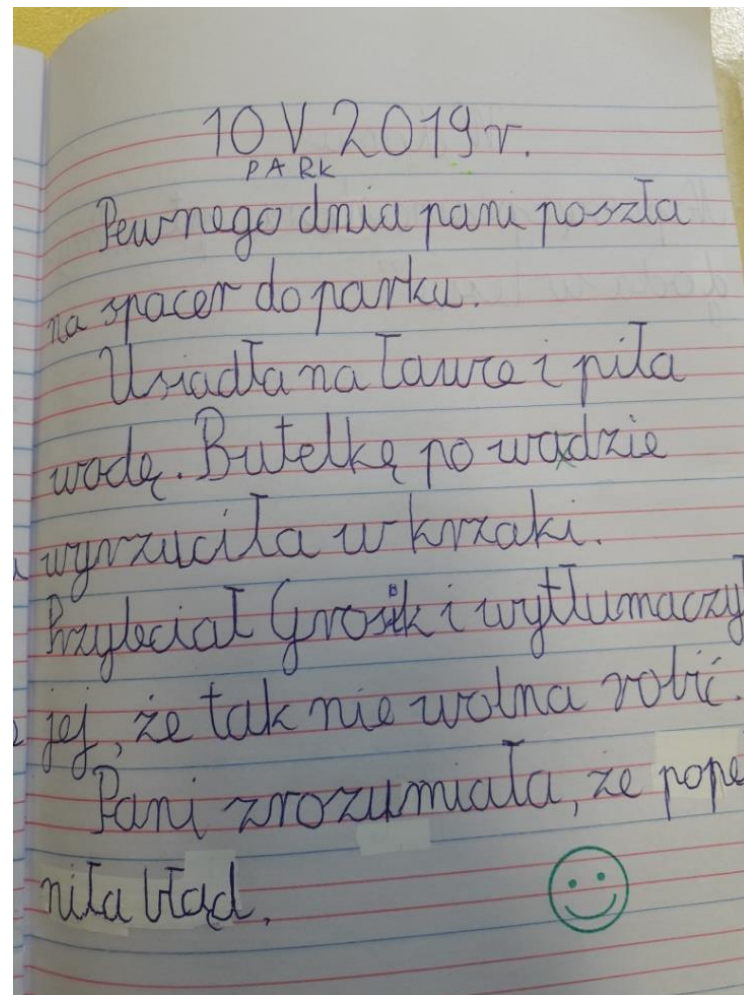 10 V 2019 r.
PARK
Pewnego dnia pani poszła
na spacer do parku.
Usiadła na ławce i piła
wodę. Butelkę po wodzie
wyrzuciła w krzaki.
Przyleciał i wytłumaczył
jej, że tak nie wolna robić.
Pani zrozumiała, że popeł
niła błąd.